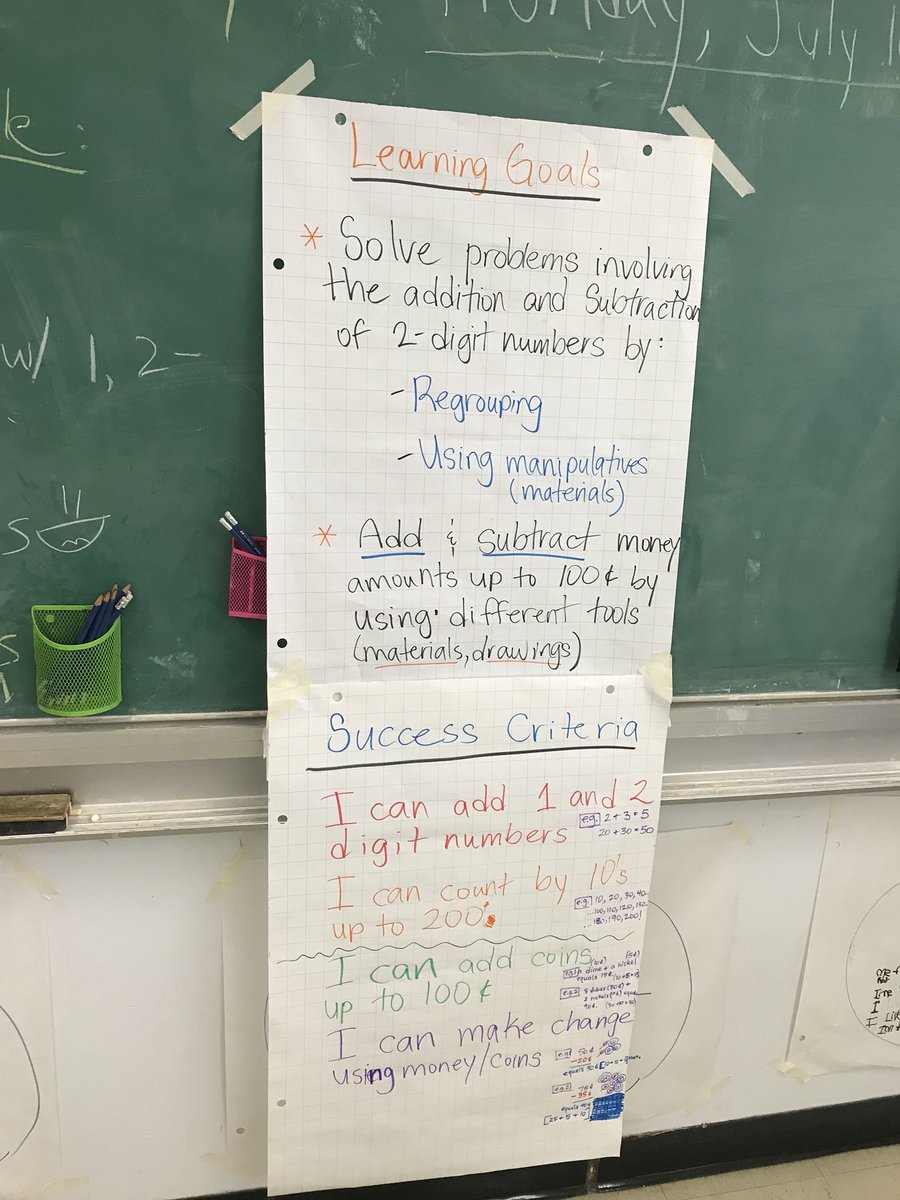 Monday, July 1
k:
w/ 1, 2-
S
Learning Goals
* Solve problems involving
the addition and Subtraction
of 2-digit numbers by:
- Regrouping
- Using manipulatives
(materials)
* Add & subtract money
amounts up to 100¢ by
using different tools
(materials, drawings)
Success Criteria
I can add 1 and 2
digit numbers
e.g. 2+3=5
20+30=50
I can count by 10's
up to 200
e.g. 10, 20, 30, 40...
...100, 110, 120, 130...
...180, 190, 200!
I can add coins
up to 100¢
(10¢) (5¢)
a dime + a nickel
equals 15¢.
e.g.2 8 dimes (80¢) +
2 nickels
90¢.
I can make change
using money/coins
e.g. 50¢
-20¢
equals 30¢
e.g.2 75¢
-35¢
equals
[25+5+10]